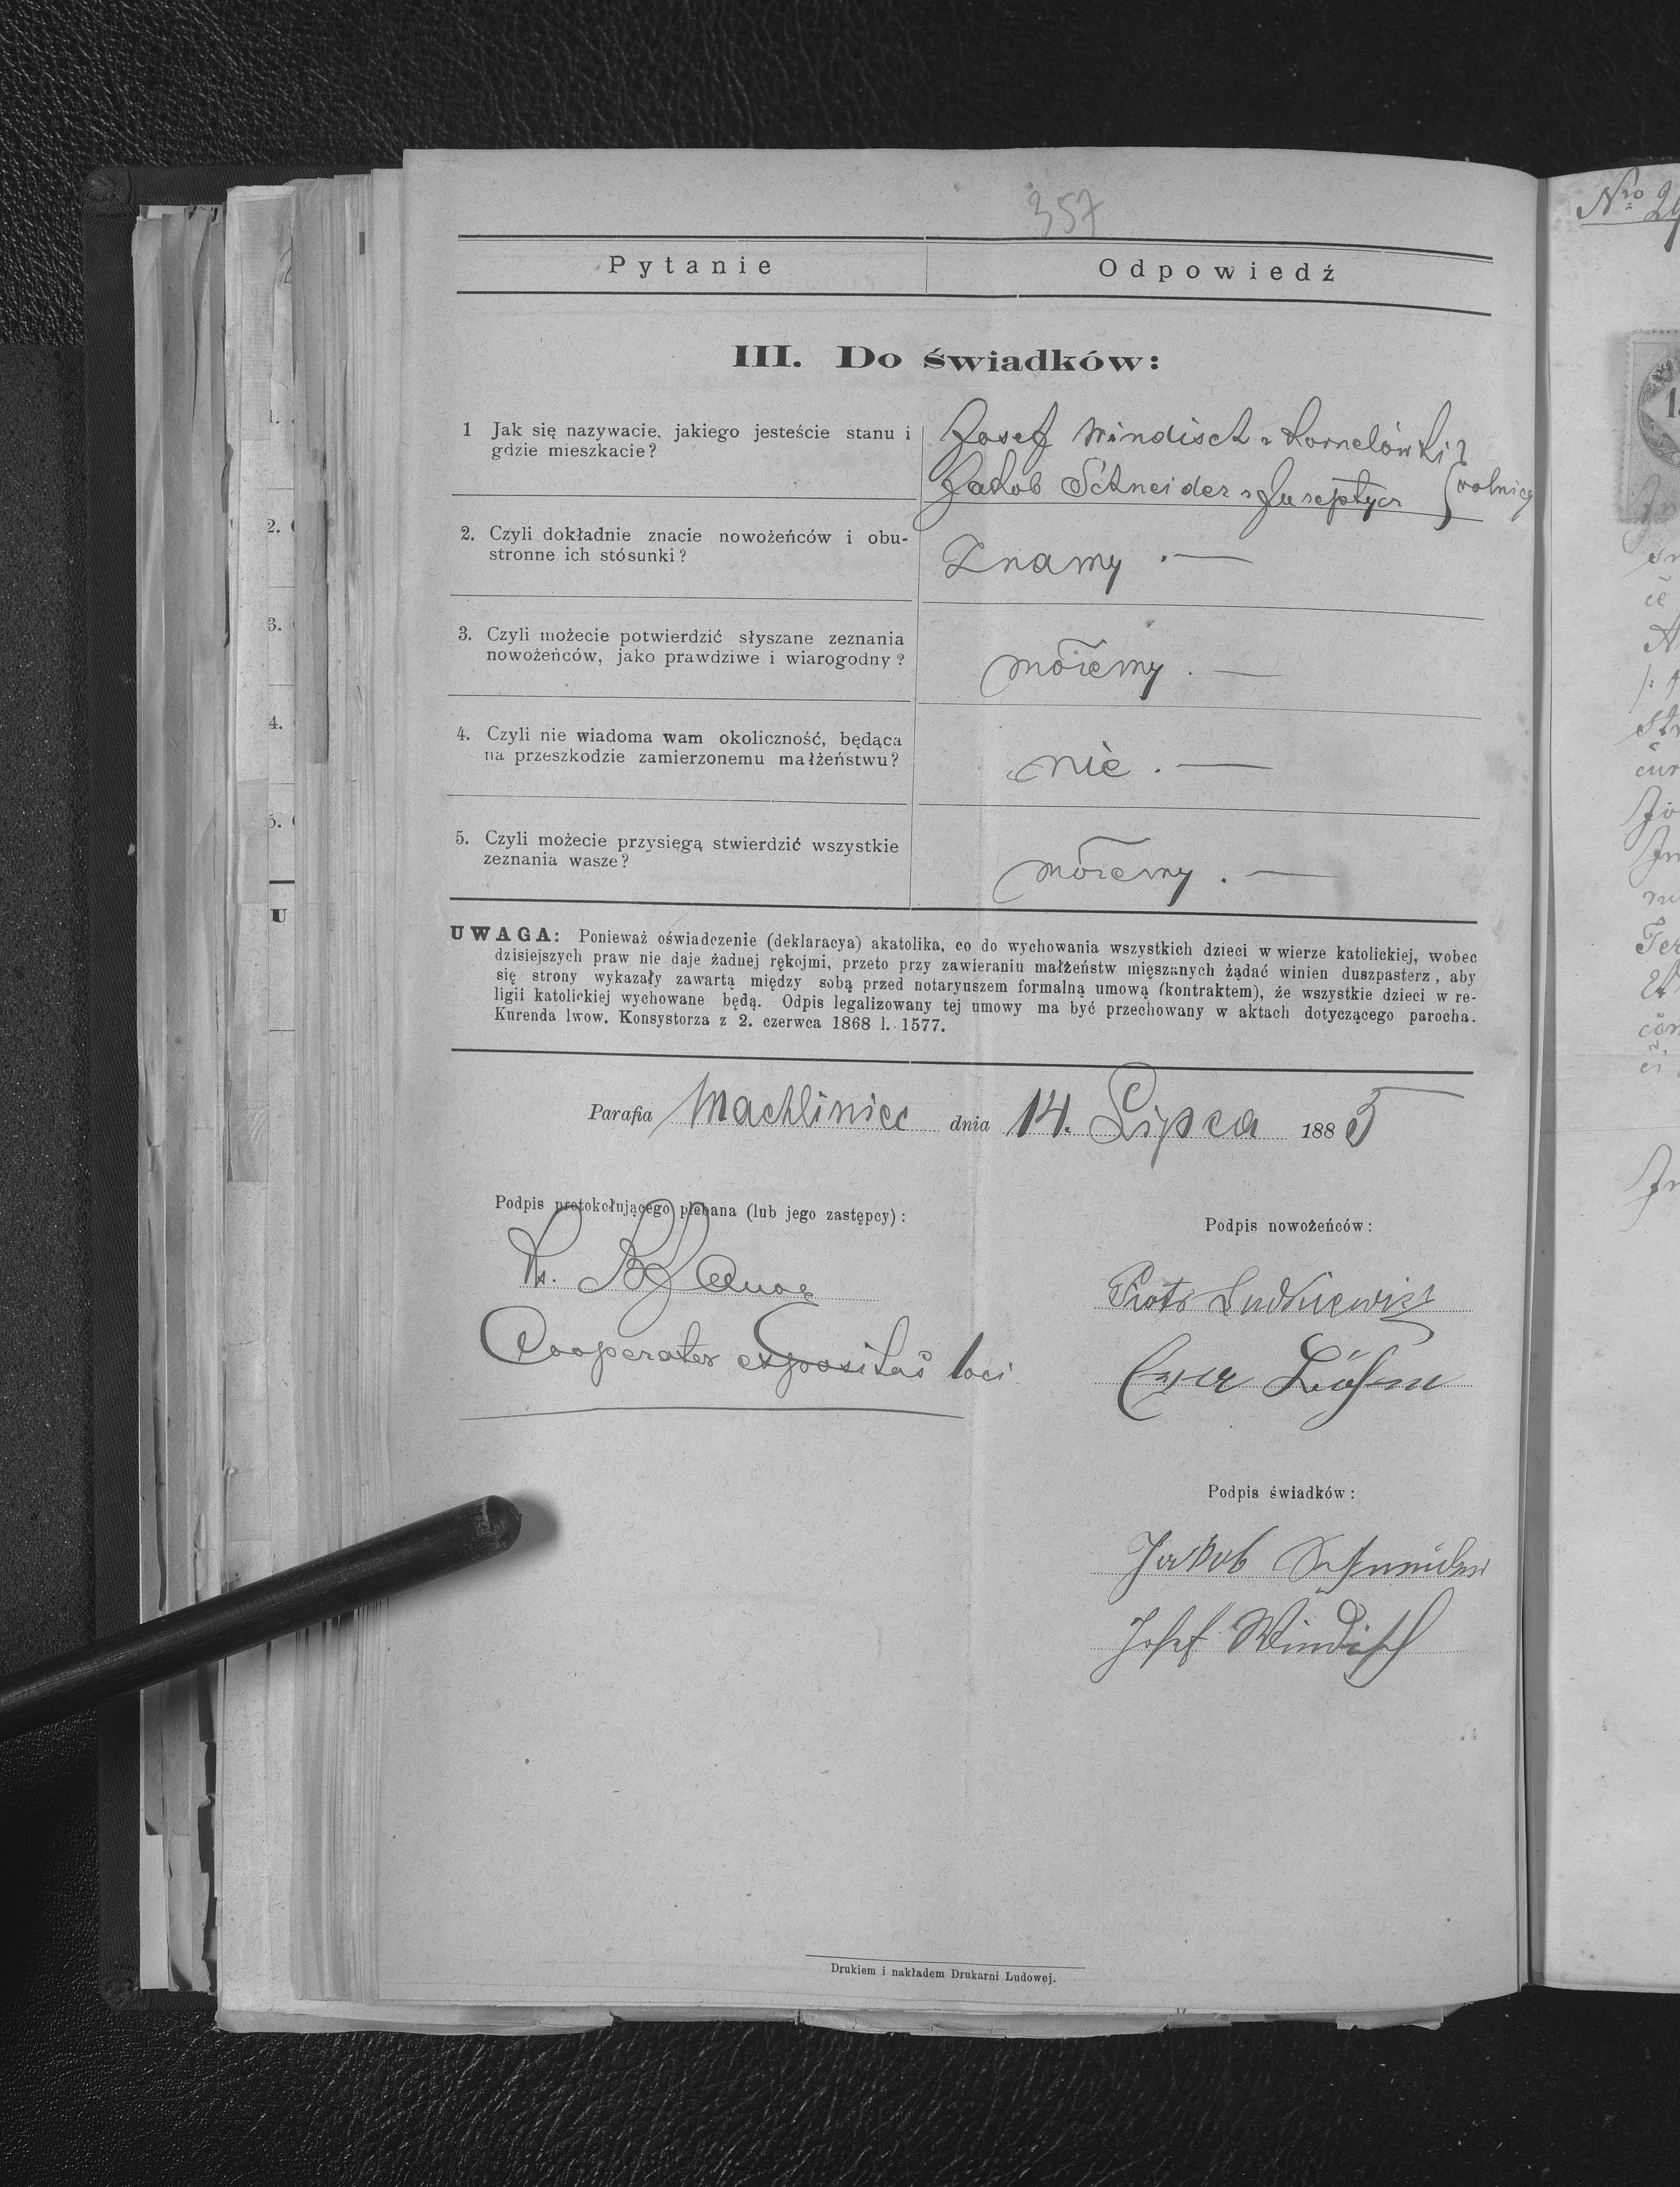 357
Pytanie Odpowiedź
III. Do świadków:
1 Jak się nazywacie, jakiego jesteście stanu i
gdzie mieszkacie?
Josef Windisch z Kornelówki
Jakob Schneider z Juseptycz } rolnicy
2. Czyli dokładnie znacie nowożeńców i obu-
stronne ich stósunki?
Znamy . —
3. Czyli możecie potwierdzić słyszane zeznania
nowożeńców, jako prawdziwe i wiarogodny?
możemy . —
4. Czyli nie wiadoma wam okoliczność, będąca
na przeszkodzie zamierzonemu małżeństwu?
nie . —
5. Czyli możecie przysięgą stwierdzić wszystkie
zeznania wasze?
możemy . —
UWAGA: Ponieważ oświadczenie (deklaracya) akatolika, co do wychowania wszystkich dzieci w wierze katolickiej, wobec
dzisiejszych praw nie daje żadnej rękojmi, przeto przy zawieraniu małżeństw mięszanych żądać winien duszpasterz, aby
się strony wykazały zawartą między sobą przed notaryuszem formalną umową (kontraktem), że wszystkie dzieci w re-
ligii katolickiej wychowane będą. Odpis legalizowany tej umowy ma być przechowany w aktach dotyczącego parocha.
Kurenda lwow. Konsystorza z 2. czerwca 1868 l. 1577.
Parafia Machliniec dnia 14. Lipca 1885
Podpis protokołującego plebana (lub jego zastępcy):
Ks.
Cooperator expositus loci
Podpis nowożeńców:
Piotr Ludkiewicz
Ewa Böhm
Podpis świadków:
Jakob Schneider
Josef Windisch
Drukiem i nakładem Drukarni Ludowej.
Nro